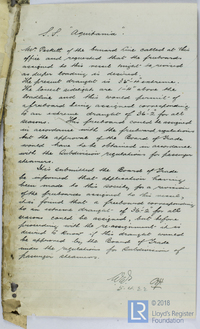 S.S. "Aquitania"
Mr. Paskett of the Cunard Line called at this
office and requested that the freeboards
assigned to this vessel might be revised
as deeper loading is desired.
The present draught is 35'-11" extreme.
The lowest sidelight are 1'-8" above the
loadline and this would permit of
a freeboard being assigned corresponding
to an extreme draught of 36'-2" for all
seasons. The freeboard could be assigned
in accordance with the freeboard regulations
but the approval of the Board of Trade
would have to be obtained in accordance
with the Subdivision regulations for passenger
steamers.
It is submitted the Board of Trade
be informed that application having
been made to this society for a revision
of the freeboards assigned to this vessel, it is
found that a freeboard corresponding
to an extreme draught of 36'-2" for all
seasons could be assigned, but before
proceeding with the reassignment it is
desired to know if this draught would
be approved by the Board of Trade
under the regulations for Subdivision of
passenger steamers.
© 2018
Lloyd's Register
Foundation